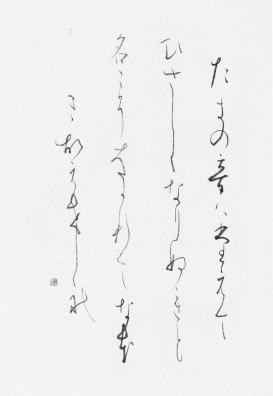 たきの音はたえて
ひさしくなりぬれと
名こそなかれてなほ
きこえけれ